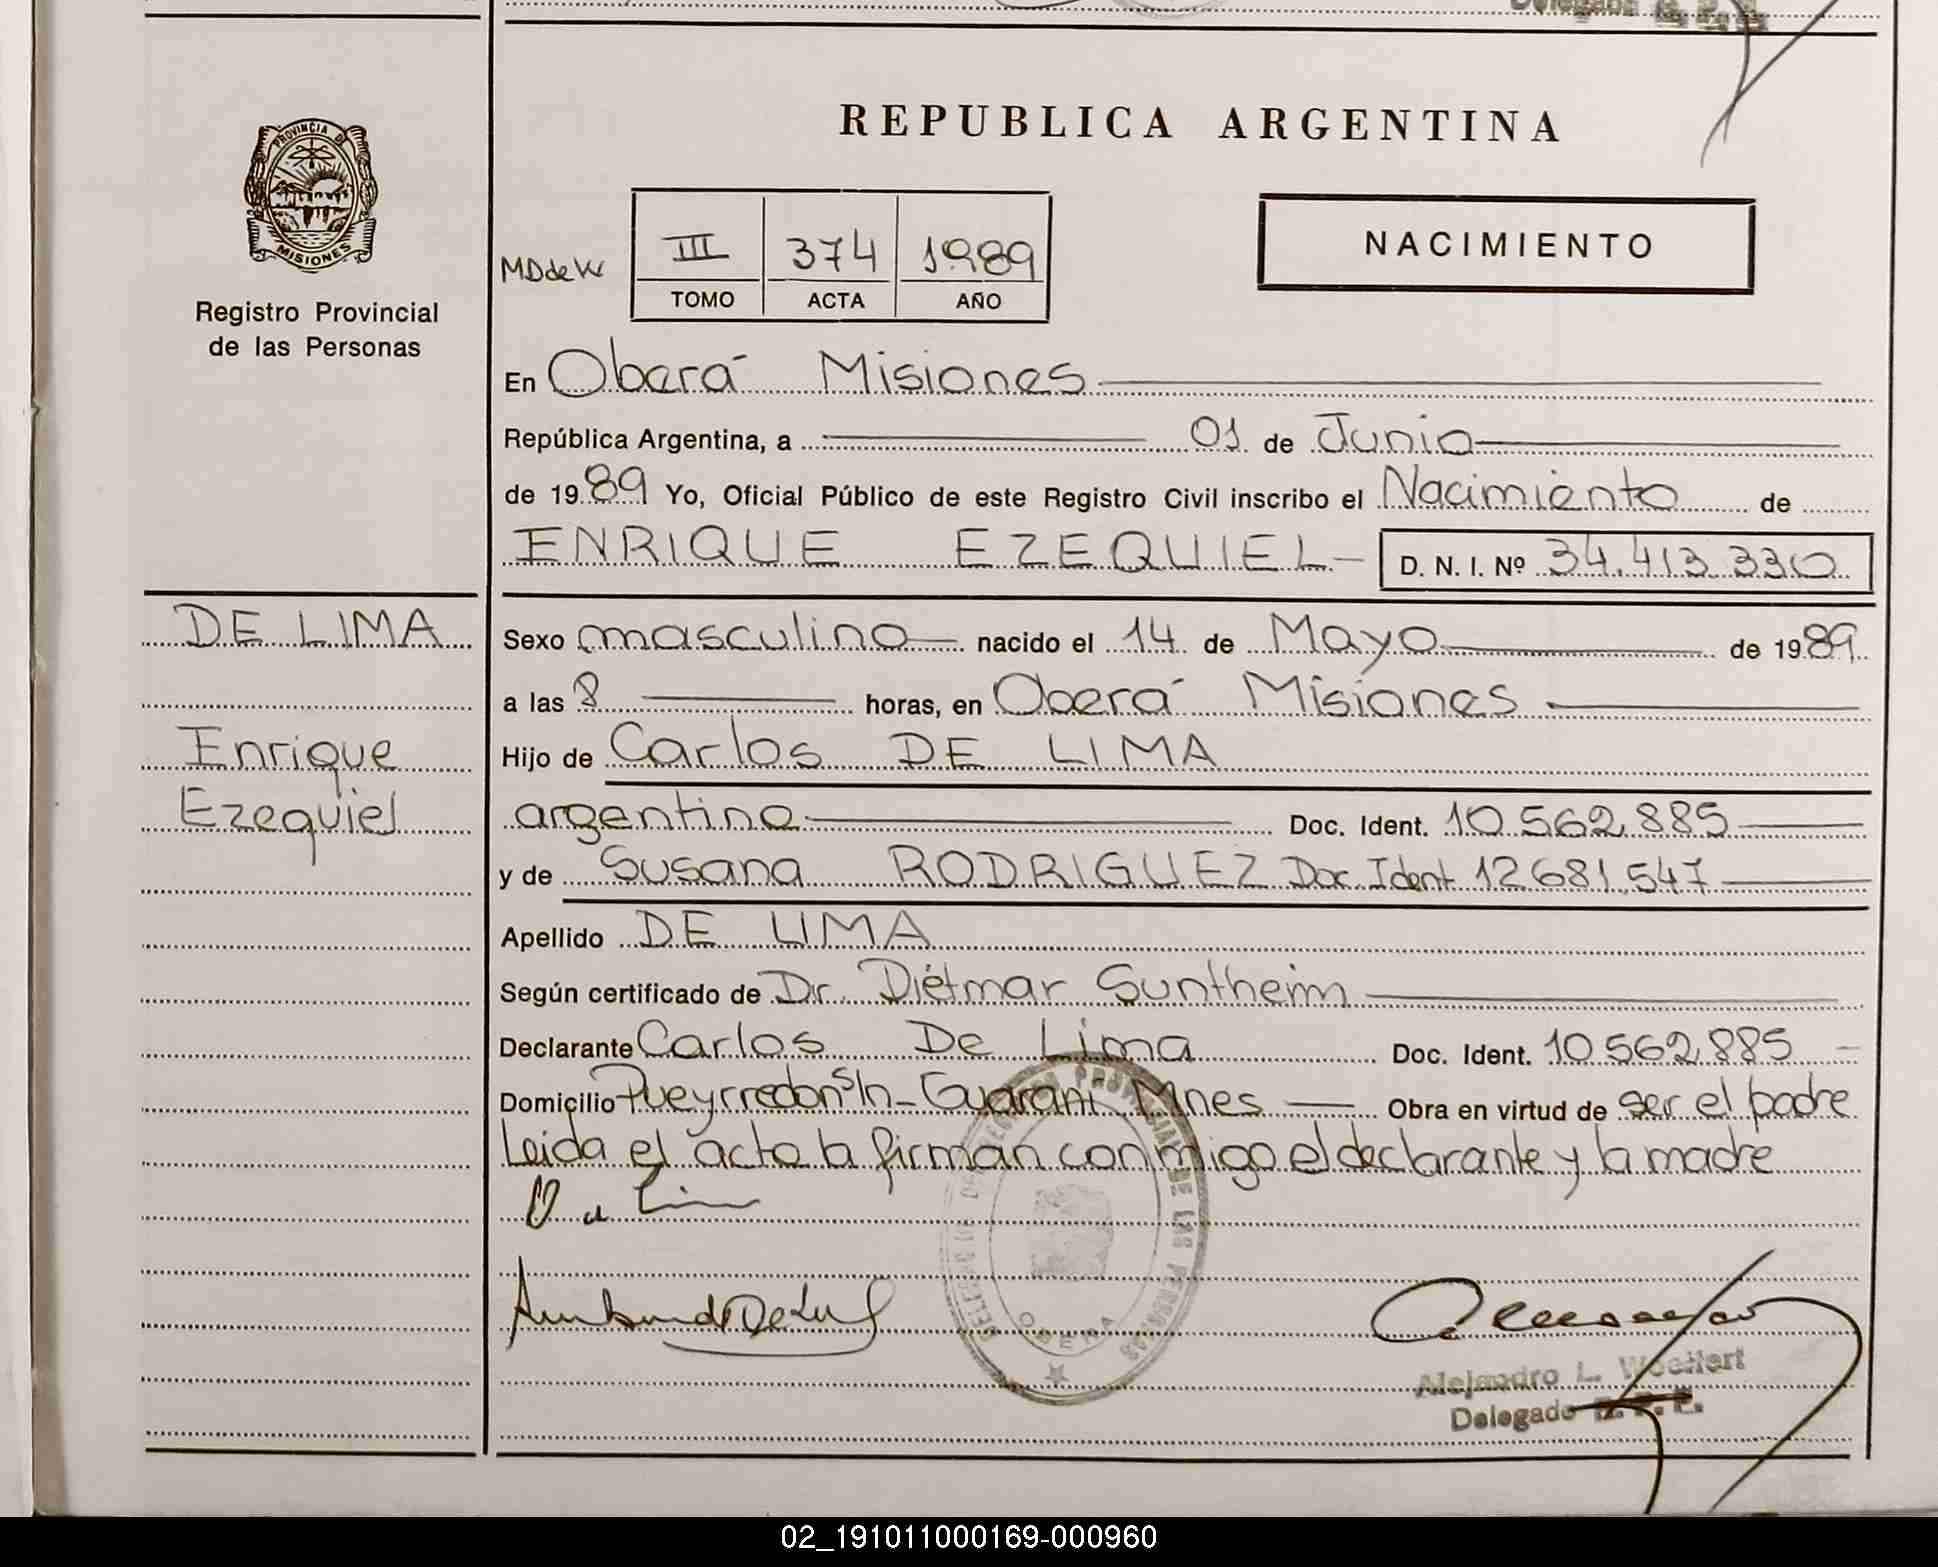 Delegado R. P. P.
REPUBLICA ARGENTINA
PROVINCIA DE
MISIONES
Registro Provincial
de las Personas
MDdeW
III 374 1989
TOMO ACTA AÑO
NACIMIENTO
En Oberá Misiones
República Argentina, a 01 de Junio
de 1989 Yo, Oficial Público de este Registro Civil inscribo el Nacimiento de
ENRIQUE EZEQUIEL- D. N. I. Nº 34.413.330
DE LIMA
Enrique
Ezequiel
Sexo masculino nacido el 14 de Mayo de 1989
a las 8 horas, en Oberá Misiones
Hijo de Carlos DE LIMA
argentino Doc. Ident. 10.562.885
y de Susana RODRIGUEZ Doc Ident 12.681.547
Apellido DE LIMA
Según certificado de Dr. Diétmar Suntheim
Declarante Carlos De Lima Doc. Ident. 10.562.885 -
Domicilio Pueyrredon S/n - Guaraní Mnes Obra en virtud de ser el padre
Leida el acta la firman conmigo el declarante y la madre
DELEGACION PROVINCIAL DE LAS PERSONAS
OBERA
Alejandro L. Woeffert
Delegado R. P. P.
02_191011000169-000960